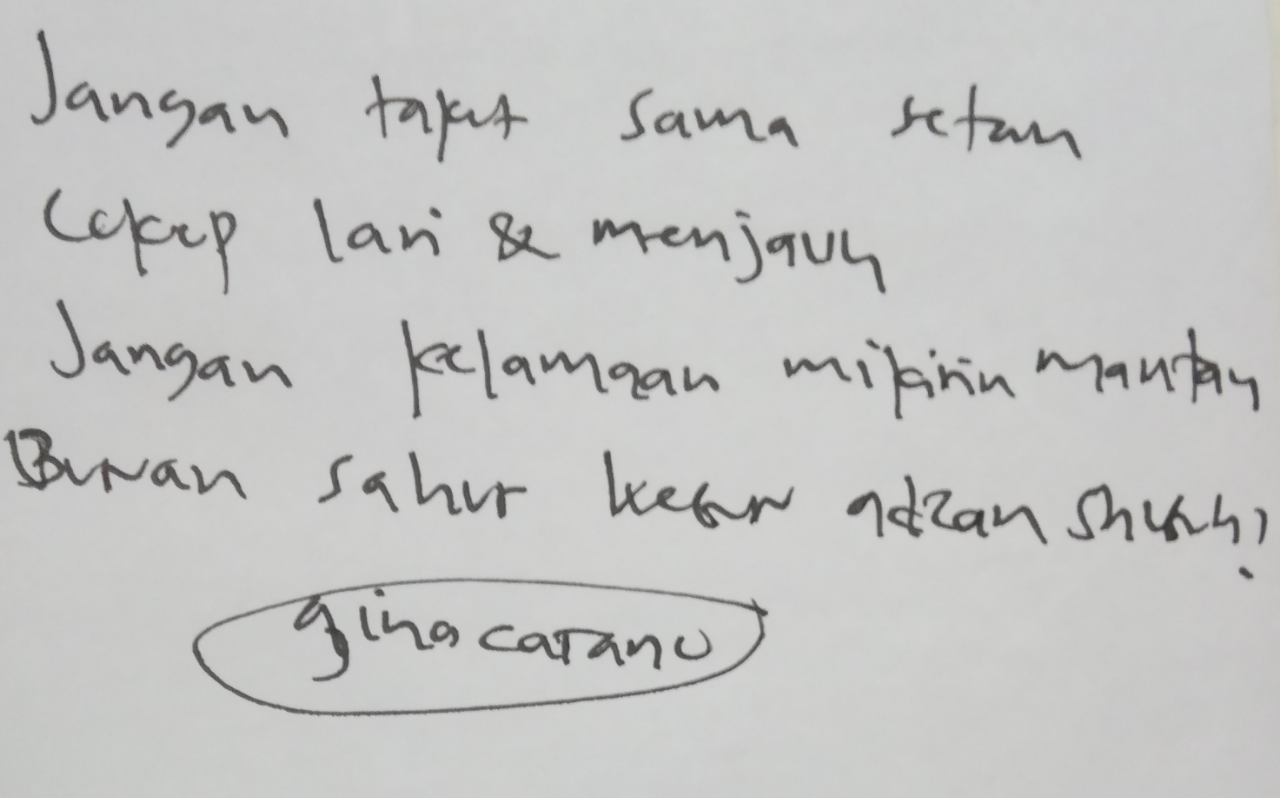 Jangan takut sama setan
Cukup lari & menjauh
Jangan kelamaan mikirin mantan
Buruan sahur keburu adzan shubuh!
gina carano